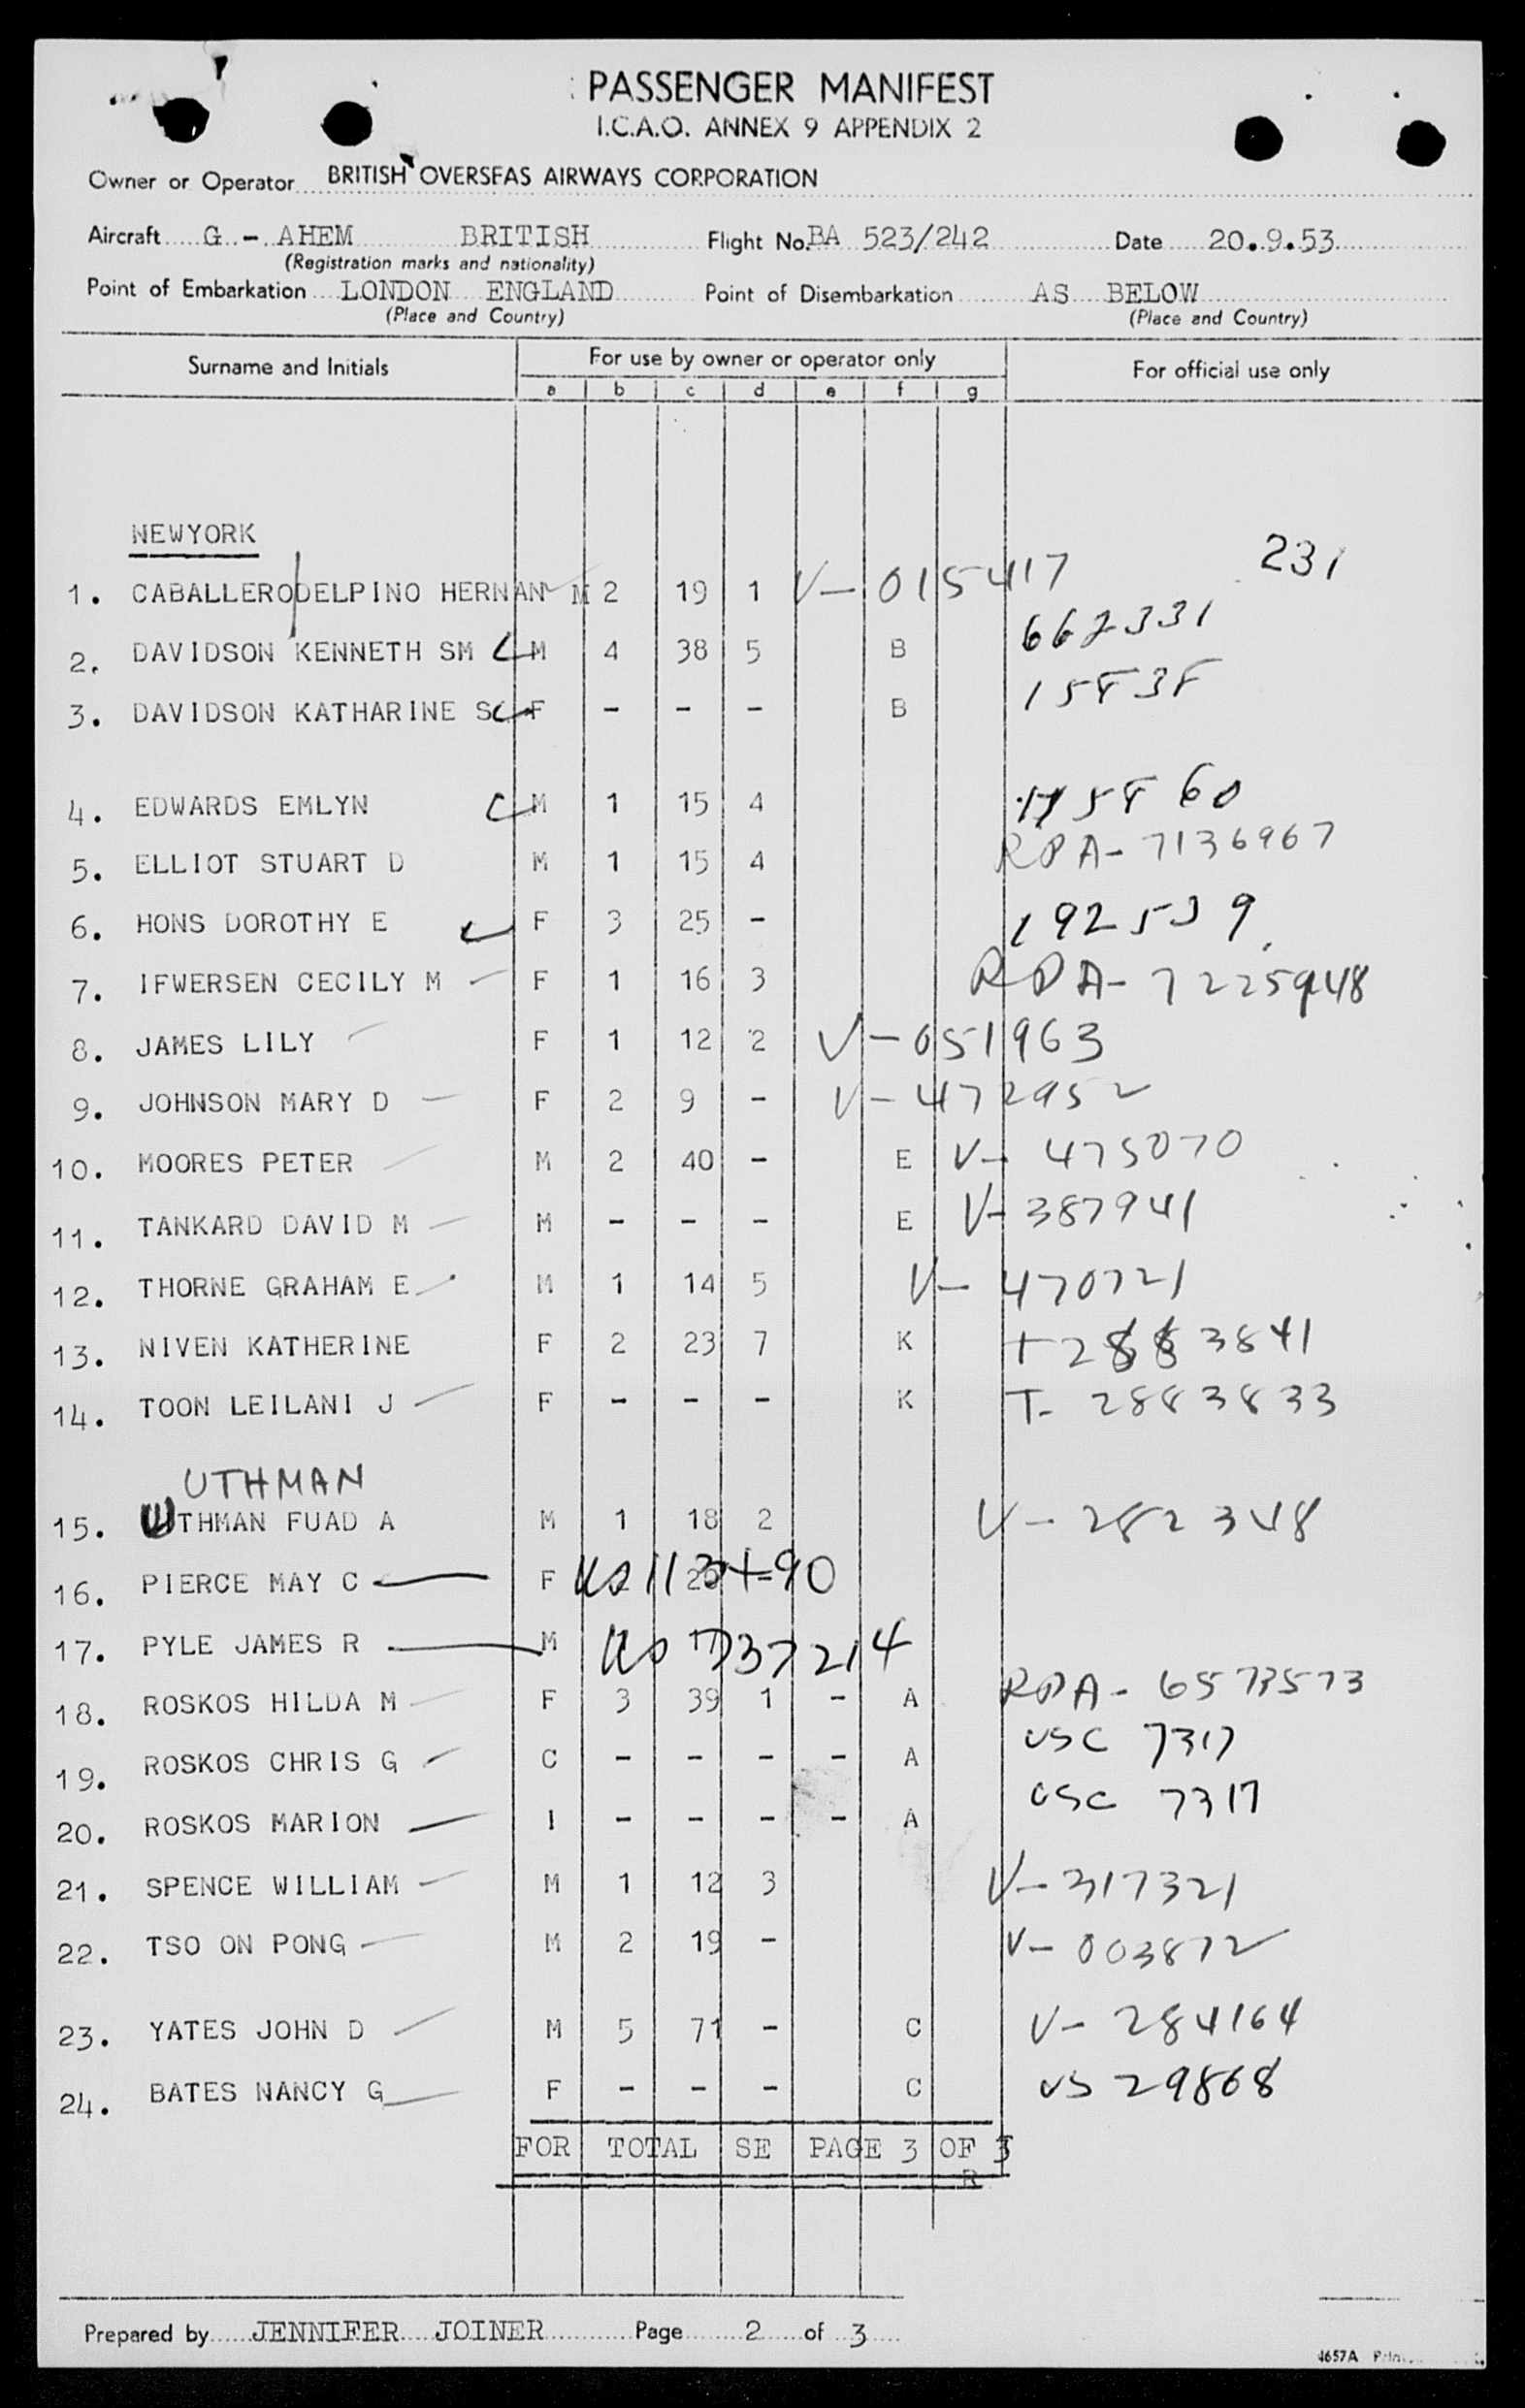 PASSENGER MANIFEST
I.C.A.O. ANNEX 9 APPENDIX 2
Owner or Operator BRITISH OVERSEAS AIRWAYS CORPORATION
Aircraft G - AHEM BRITISH Flight No. BA 523/242 Date 20.9.53
(Registration marks and nationality)
Point of Embarkation LONDON ENGLAND Point of Disembarkation AS BELOW
(Place and Country) (Place and Country)
Surname and Initials For use by owner or operator only For official use only
a b c d e f g
NEWYORK
231
1. CABALLERO DELPINO HERNAN M 2 19 1 V-015417
2. DAVIDSON KENNETH SM M 4 38 5 B 662331
3. DAVIDSON KATHARINE S F - - - B 15838
4. EDWARDS EMLYN M 1 15 4 60
5. ELLIOT STUART D M 1 15 4 RPA-7136967
6. HONS DOROTHY E F 3 25 - 192539
7. IFWERSEN CECILY M F 1 16 3 RPA-7225948
8. JAMES LILY F 1 12 2 V-051963
9. JOHNSON MARY D F 2 9 - V-472952
10. MOORES PETER M 2 40 - E V-475070
11. TANKARD DAVID M M - - - E V-387941
12. THORNE GRAHAM E M 1 14 5 V-470721
13. NIVEN KATHERINE F 2 23 7 K T2883841
14. TOON LEILANI J F - - - K T-2883833
UTHMAN
15. UTHMAN FUAD A M 1 18 2 V-282348
16. PIERCE MAY C F
17. PYLE JAMES R M
18. ROSKOS HILDA M F 3 39 1 - A RPA-6573573
19. ROSKOS CHRIS G C - - - - A USC 7317
20. ROSKOS MARION I - - - - A USC 7317
21. SPENCE WILLIAM M 1 12 3 V-317321
22. TSO ON PONG M 2 19 - V-003872
23. YATES JOHN D M 5 71 - C V-284164
24. BATES NANCY G F - - - C US 29868
FOR TOTAL SE PAGE 3 OF 3
R
Prepared by JENNIFER JOINER Page 2 of 3
4657A